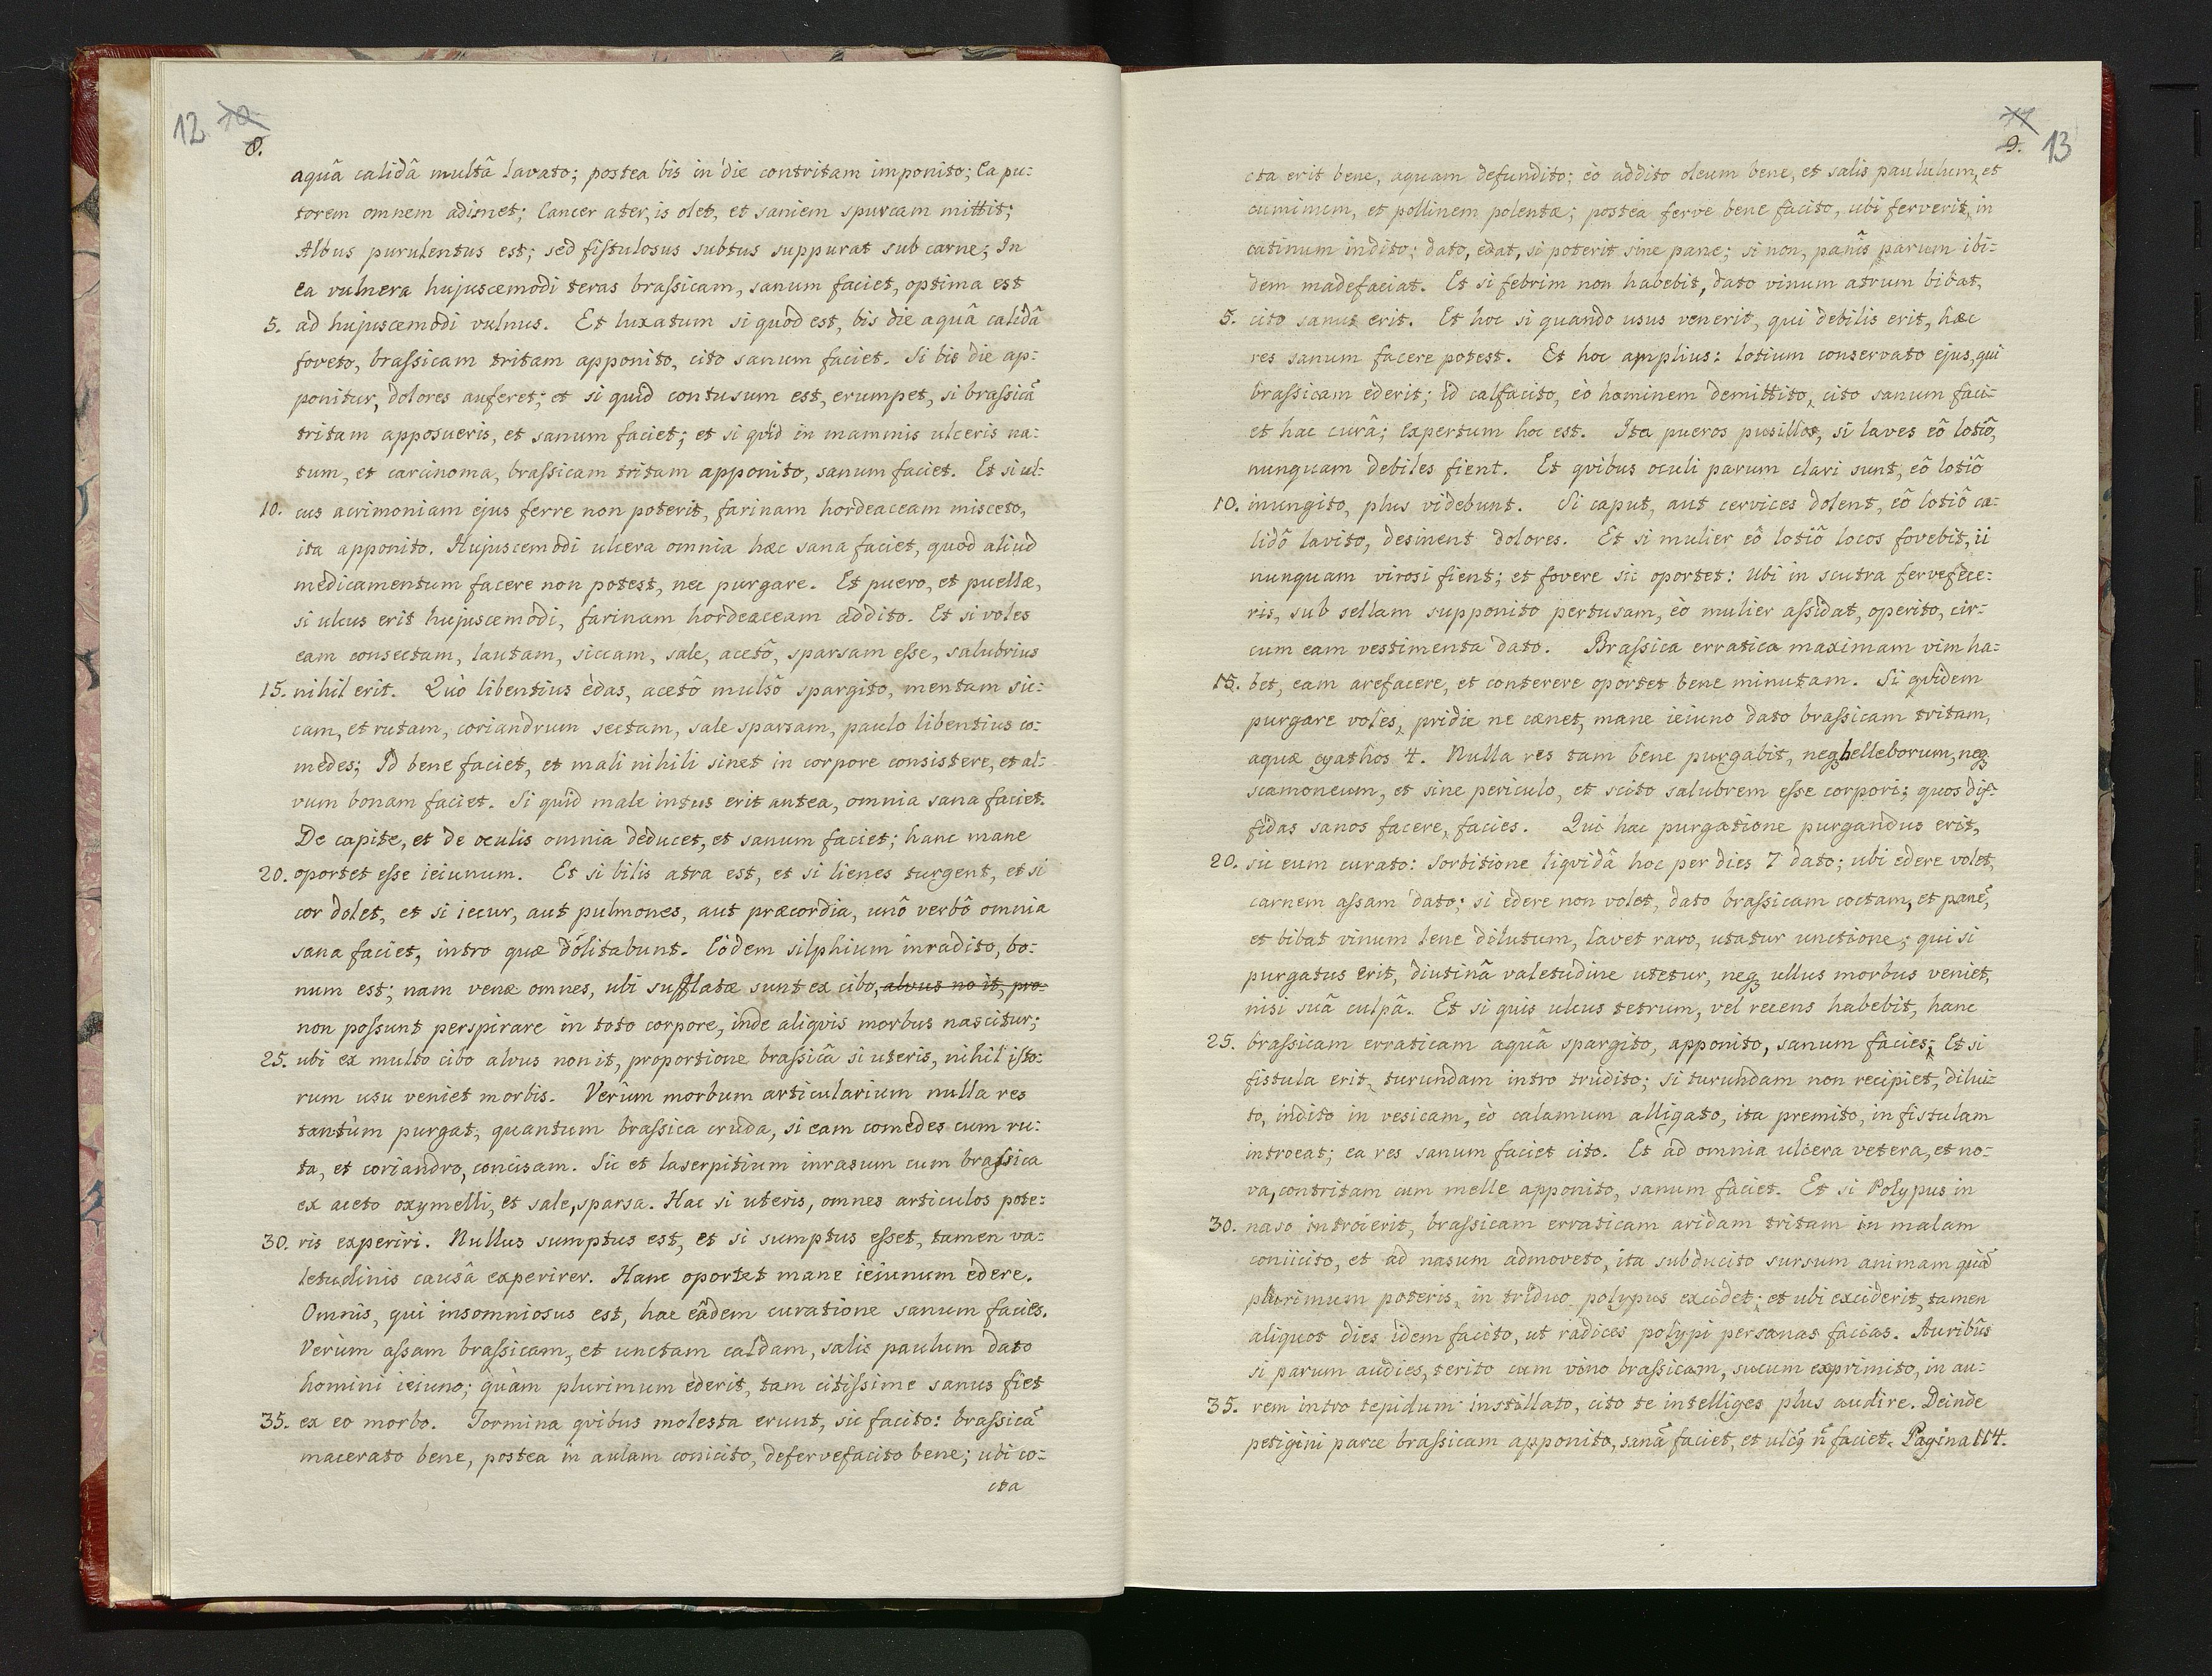 12 10
8.
aquâ calidâ multâ lavato; postea bis in die contritam imponito; Ea pu:
torem omnem adimet; Cancer ater, is olet, et saniem spurcam mittit;
Albus purulentus est; sed fistulosus subtus suppurat sub carne; In
ea vulnera hujuscemodi teras brassicam, sanum faciet, optima est
5. ad hujuscemodi vulnus. Et luxatum si quod est, bis die aquâ calidâ
foveto, brassicam tritam apponito, cito sanum faciet. Si bis die ap:
ponitur, dolores auferet; et si quid contusum est, erumpet, si brassicā
tritam apposueris, et sanum faciet; et si quid in mammis ulceris na:
tum, et carcinoma, brassicam tritam apponito, sanum faciet. Et si ul:
10. cus acrimoniam ejus ferre non poterit, farinam hordeaceam misceto,
ita apponito. Hujuscemodi ulcera omnia hæc sana faciet, quod aliud
medicamentum facere non potest, nec purgare. Et puero, et puellæ,
si ulcus erit hujuscemodi, farinam hordeaceam addito. Et si voles
eam consectam, lautam, siccam, sale, acetô, sparsam esse, salubrius
15. nihil erit. Quò libentius èdas, acetô mulsô spargito, mentam sic:
cam, et rutam, coriandrum sectam, sale sparsam, paulo libentius co:
medes; Id bene faciet, et mali nihili sinet in corpore consistere, et al:
vum bonam faciet. Si quid male intus erit antea, omnia sana faciet.
De capite, et de oculis omnia deducet, et sanum faciet; hanc mane
20. oportet esse ieiunum. Et si bilis atra est, et si lienes turgent, et si
cor dolet, et si iecur, aut pulmones, aut præcordia, unô verbô omnia
sana faciet, intro quæ dolitabunt. Eôdem silphium inradito, bo:
num est; nam venæ omnes, ubi sufflatæ sunt ex cibo, alvus no it, pro-
non possunt perspirare in toto corpore, inde aliqvis morbus nascitur;
25. ubi ex multo cibo alvus non it, proportione brassicâ si uteris, nihil isto:
rum usu veniet morbis. Verùm morbum articularium nulla res
tantùm purgat, quantum brassica cruda, si eam comedes cum ru:
ta, et coriandro, concisam. Sic et laserpitium inrasum cum brassica
ex aceto oxymelli, et sale, sparsa. Hac si uteris, omnes articulos pote:
30. ris experiri. Nullus sumptus est, et si sumptus esset, tamen va:
letudinis causâ experirer. Hanc oportet mane ieiunum edere.
Omnis, qui insomniosus est, hac eâdem curatione sanum facies.
Verùm assam brassicam, et unctam caldam, salis paulum dato
homini ieiuno; quàm plurimum ederit, tam citissime sanus fiet
35. ex eo morbo. Tormina qvibus molesta erunt, sic facito: brassicā
macerato bene, postea in aulam coniicito, defervefacito bene; ubi co:
cta
11 13
9.
cta erit bene, aquam defundito; eò addito oleum bene, et salis paululum, et
cuminum, et pollinem polentæ; postea ferve bene facito, ubi ferverit, in
catinum indito; dato, edat, si poterit sine pane; si non, panis parum ibi:
dem madefaciat. Et si febrim non habebit, dato vinum atrum bibat,
5. cito sanus erit. Et hoc si quando usus venerit, qui debilis erit, hæc
res sanum facere potest. Et hoc amplius: lotium conservato ejus, qui
brassicam ederit; id calfacito, eò hominem demittito, cito sanum faci:
et hac curâ; expertum hoc est. Ita pueros pusillos, si laves eô lotiô,
nunquam debiles fient. Et qvibus oculi parum clari sunt, eô lotiô
10. inungito, plus videbunt. Si caput, aut cervices dolent, eô lotiô ca:
lidô lavito, desinent dolores. Et si mulier eô lotiô locos fovebit, ii
nunquam virosi fient; et fovere sic oportet: Ubi in scutra fervefece:
ris, sub sellam supponito pertusam, eò mulier assidat, operito, cir:
cum eam vestimenta dato. Brassica erratica maximam vim ha:
15. bet, eam arefacere, et conterere oportet bene minutam. Si qvidem
purgare voles, pridie ne cænet, mane ieiuno dato brassicam tritam,
aquæ cyathos 4. Nulla res tam bene purgabit, neqȝ helleborum, neqȝ
scamoneum, et sine periculo, et scito salubrem esse corpori; quos dif-
fidas sanos facere, facies. Qui hac purgatione purgandus erit,
20. sic eum curato: Sorbitione liqvidâ hoc per dies 7 dato; ubi edere volet,
carnem assam dato; si edere non volet, dato brassicam coctam, et panē,
et bibat vinum lene dilutum, lavet raro, utatur unctione; qui si
purgatus erit, diutinâ valetudine utetur, neqȝ ullus morbus veniet,
nisi suâ culpâ. Et si quis ulcus tetrum, vel recens habebit, hanc
25. brassicam erraticam aquâ spargito, apponito, sanum facies; Et si
fistula erit, turundam intro trudito; si turundam non recipiet, dilui:
to, indito in vesicam, eò calamum alligato, ita premito, in fistulam
introeat; ea res sanum faciet cito. Et ad omnia ulcera vetera, et no:
va, contritam cum melle apponito, sanum faciet. Et si Polypus in
30. naso introierit, brassicam erraticam aridam tritam in malam
coniicito, et ad nasum admoveto, ita subducito sursum animam quā
plurimum poteris, in triduo polypus excidet; et ubi exciderit, tamen
aliquot dies idem facito, ut radices polypi persanas facias. Auribus
si parum audies, terito cum vino brassicam, sucum exprimito, in au:
35. rem intro tepidum instillato, cito te intelliges plus audire. Deinde
petigini parce brassicam apponito, sanā faciet, et ulcq n̄ faciet. Pagina 114.